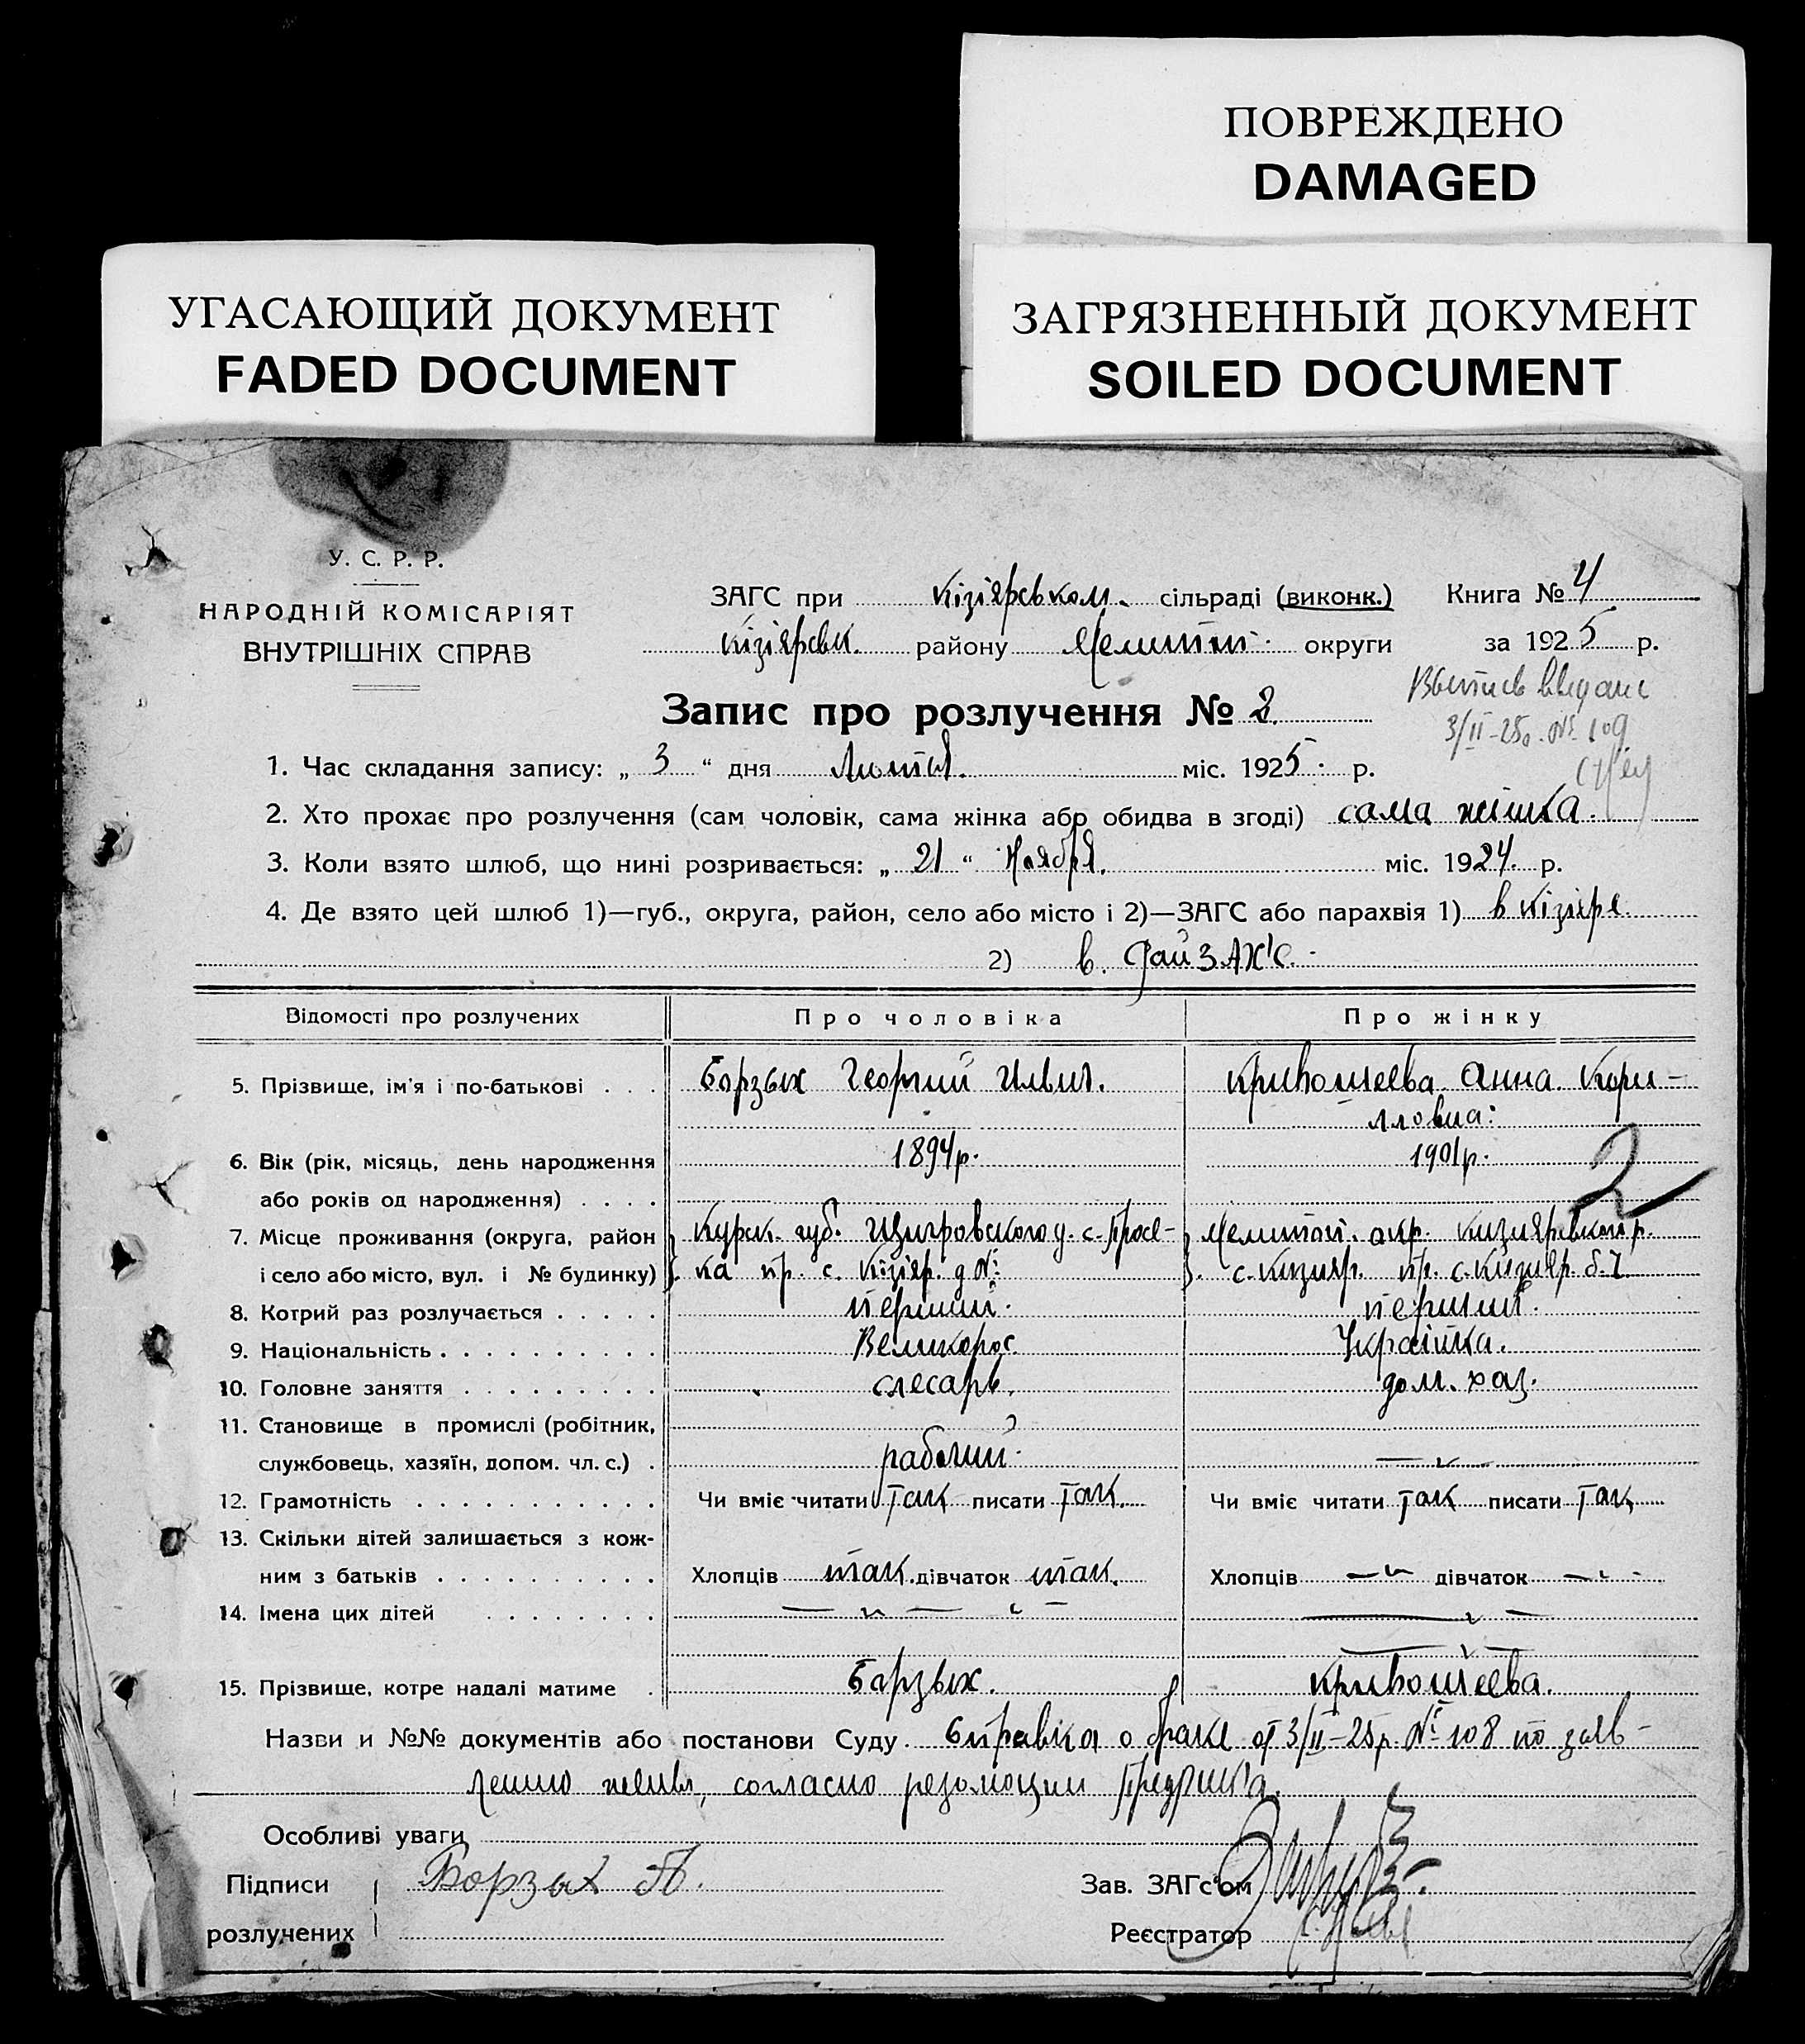 ПОВРЕЖДЕНО
DAMAGED
УГАСАЮЩИЙ ДОКУМЕНТ
FADED DOCUMENT
ЗАГРЯЗНЕННЫЙ ДОКУМЕНТ
SOILED DOCUMENT
У. С. Р. Р.
НАРОДНІЙ КОМІСАРІЯТ
ВНУТРІШНІХ СПРАВ
ЗАГС при Кізіярськом. сільраді (виконк.) Книга № 4
Кізіярськ. району Мелитоп. округи за 1925 р.
3/II-25р. № 109
Запис про розлучення № 2.
1. Час складання запису: „ 3 “ дня Лютня. міс. 1925. р.
2. Хто прохає про розлучення (сам чоловік, сама жінка або обидва в згоді) сама жінка.
3. Коли взято шлюб, що нині розривається: „ 21 “ Ноября. міс. 1924. р.
4. Де взято цей шлюб 1)—губ., округа, район, село або місто і 2)—ЗАГС або парахвія 1) в Кізіяре
2) в.
Відомості про розлучених Про чоловіка Про жінку
5. Прізвище, ім'я і по-батькові . . . Борзых Георгий Ильич. Кривошеева Анна Кири-
лловна.
6. Вік (рік, місяць, день народження 1894р. 1901р.
або років од народження) . . . . 2
7. Місце проживання (округа, район Курск. губ. Щигровского у. с. Мелитоп. окр. Кизиярвского р.
і село або місто, вул. і № будинку) пр. с. Кізіяр. д № с. Кизияр. пр. с. Кизияр
8. Котрий раз розлучається . . . . . перший. перший.
9. Національність . . . . . . . . . . Великорос Українка.
10. Головне заняття . . . . . . . . . слесарь. дом. хаз.
11. Становище в промислі (робітник,
службовець, хазяїн, допом. чл. с.) . рабочий. — „ —
12. Грамотність . . . . . . . . . . . Чи вміє читати так писати так. Чи вміє читати так писати так
13. Скільки дітей залишається з кож-
ним з батьків . . . . . . . . . . Хлопців дівчаток Хлопців — „ дівчаток — „ -
14. Імена цих дітей . . . . . . . . — „ — „ — — „ —
15. Прізвище, котре надалі матиме . Борзых. Кривошеева.
Назви и №№ документів або постанови Суду. Справка о браке от 3/II-25р. № 108 по заяв-
лению жены, согласно резолюции
Особливі уваги
Підписи Борзых А. Зав. ЗАГс'ом
розлучених Реєстратор